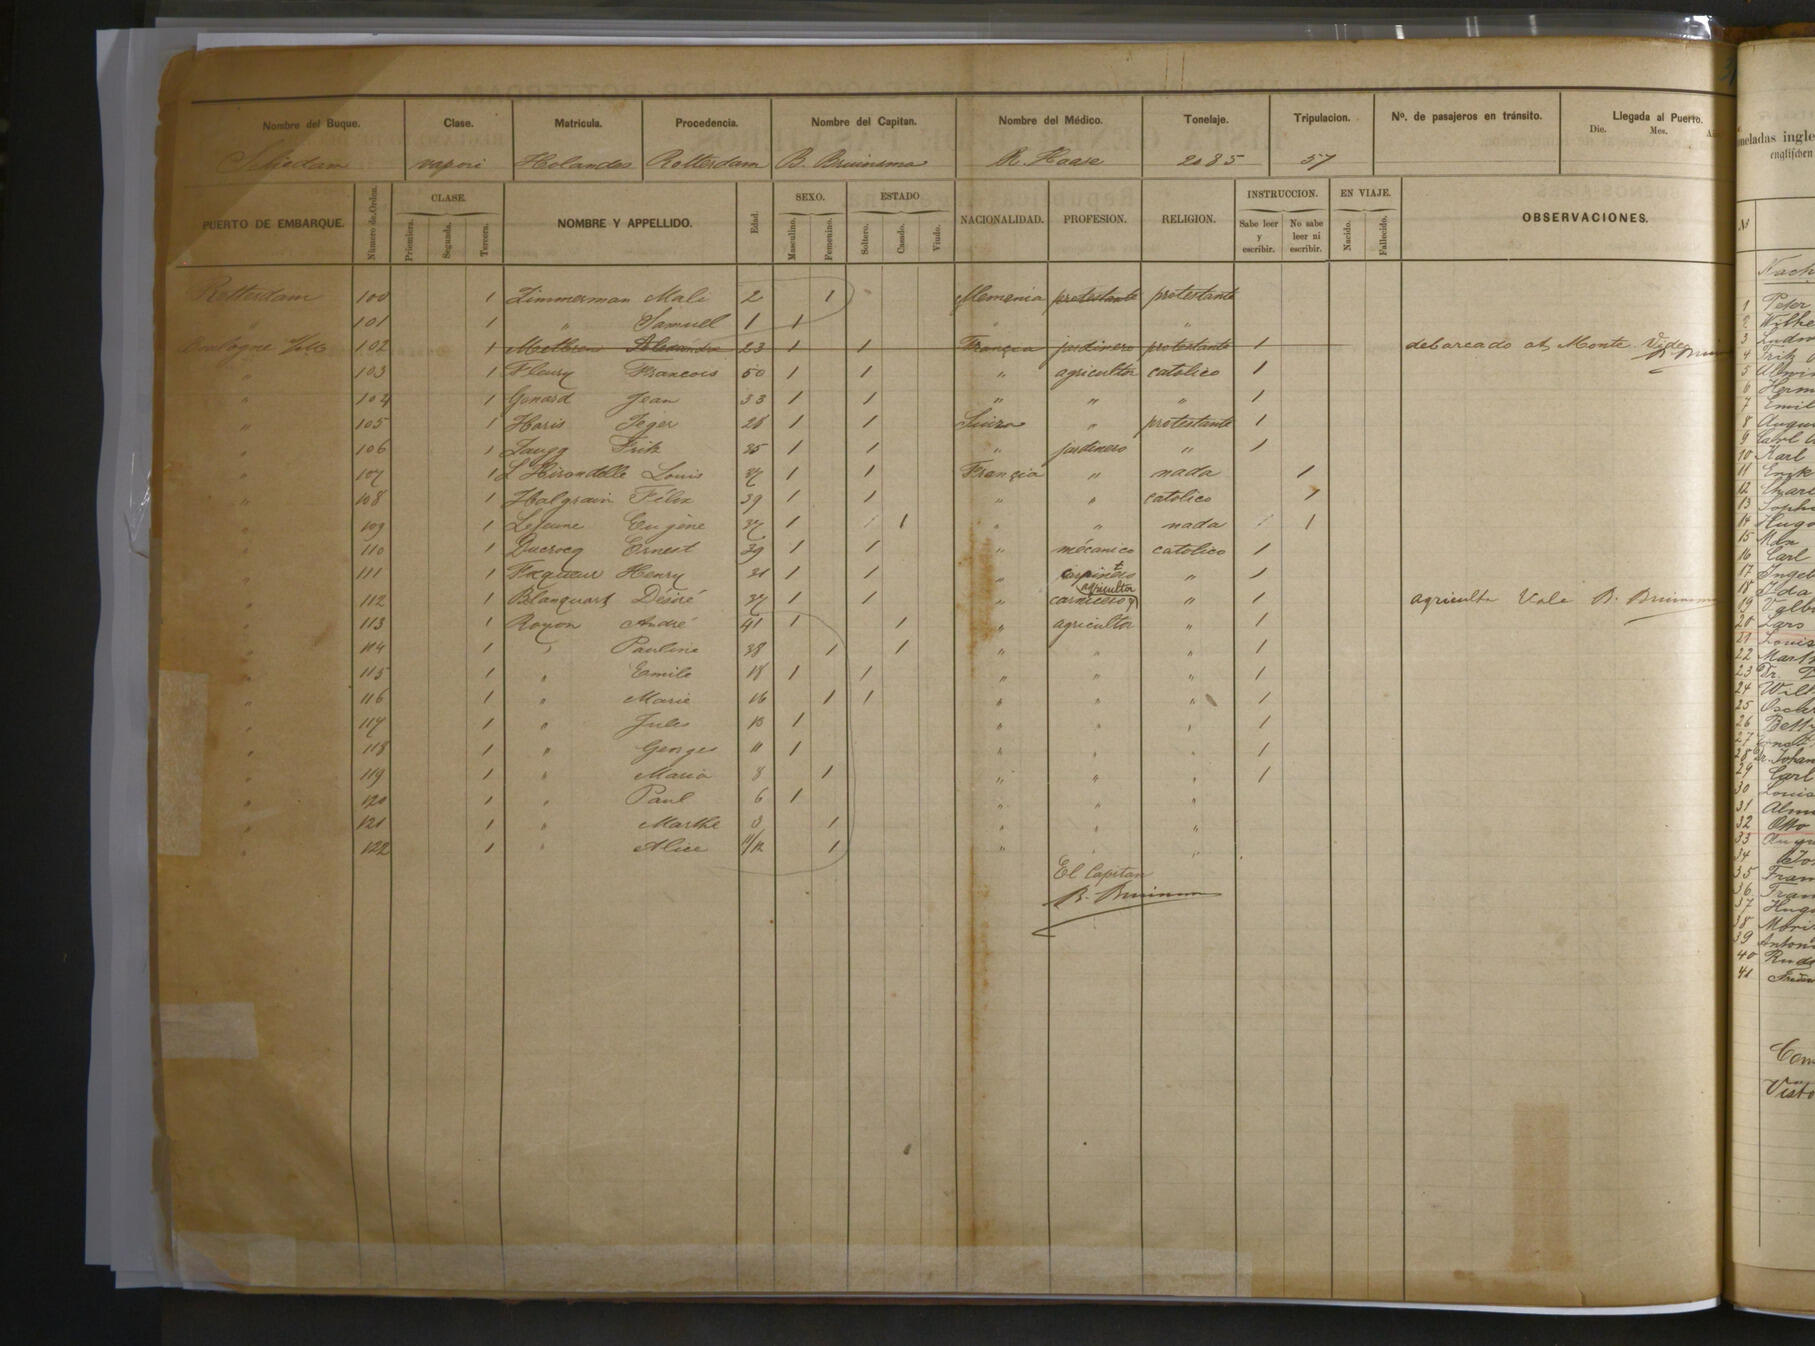 Nombre del Buque. Clase. Matricula. Procedencia. Nombre del Capitan. Nombre del Médico. Tonelaje. Tripulacion. Nº. de pasajeros en tránsito. Llegada al Puerto.
Die. Mes.
Schiedam vapori Holandes Rotterdam B. Bruinsma R. Haase 2085 57
PUERTO DE EMBARQUE. Número de Orden. CLASE. Priemiera. Segunda. Tercera. NOMBRE Y APPELLIDO. Edad. SEXO. Masculino. Femenino. ESTADO Soltero. Casado. Viudo. NACIONALIDAD. PROFESION. RELIGION. INSTRUCCION. Sabe leer y escribir. No sabe leer ni escribir. EN VIAJE. Nacido. Fallecido. OBSERVACIONES.
Rotterdam 100 1 Zimmerman Mali 2 1 Alemania protestante protestante
" 101 1 " Samuel 1 1 " "
Boulogne 102 1 Methren Alexandre 23 1 1 Francia jardinero protestante 1 debarcado at Monte Video
" 103 1 Fleury Francois 50 1 1 " agricultor catolico 1
" 104 1 Gonard Jean 33 1 1 " " " 1
" 105 1 Haris Jeger 28 1 1 Suiza " protestante 1
" 106 1 Zaugg Fritz 35 1 1 " jardinero " 1
" 107 1 L'Hirondelle Louis 37 1 1 Françia " nada 1
" 108 1 Halgrain Félix 39 1 1 " " catolico 1
" 109 1 Lejeune Eugène 37 1 1 " " nada 1
" 110 1 Ducrocq Ernest 39 1 1 " mécanico catolico 1
" 111 1 Henry 31 1 1 " carpintero " 1
" 112 1 Blanquart Désiré 37 1 1 " carnicero y agricultor " 1 agriculto Vale B. Bruinsma
" 113 1 Royon André 41 1 1 " agricultor " 1
" 114 1 " Pauline 38 1 1 " " " 1
" 115 1 " Emile 18 1 1 " " " 1
" 116 1 " Marie 16 1 1 " " " 1
" 117 1 " Jules 13 1 " " " 1
" 118 1 " Georges 11 1 " " " 1
" 119 1 " Maria 8 1 " " " 1
" 120 1 " Paul 6 1 " " "
" 121 1 " Marthe 3 1 " " "
" 122 1 " Alice 11/12 1 " " "
El Capitan
B. Bruinsma